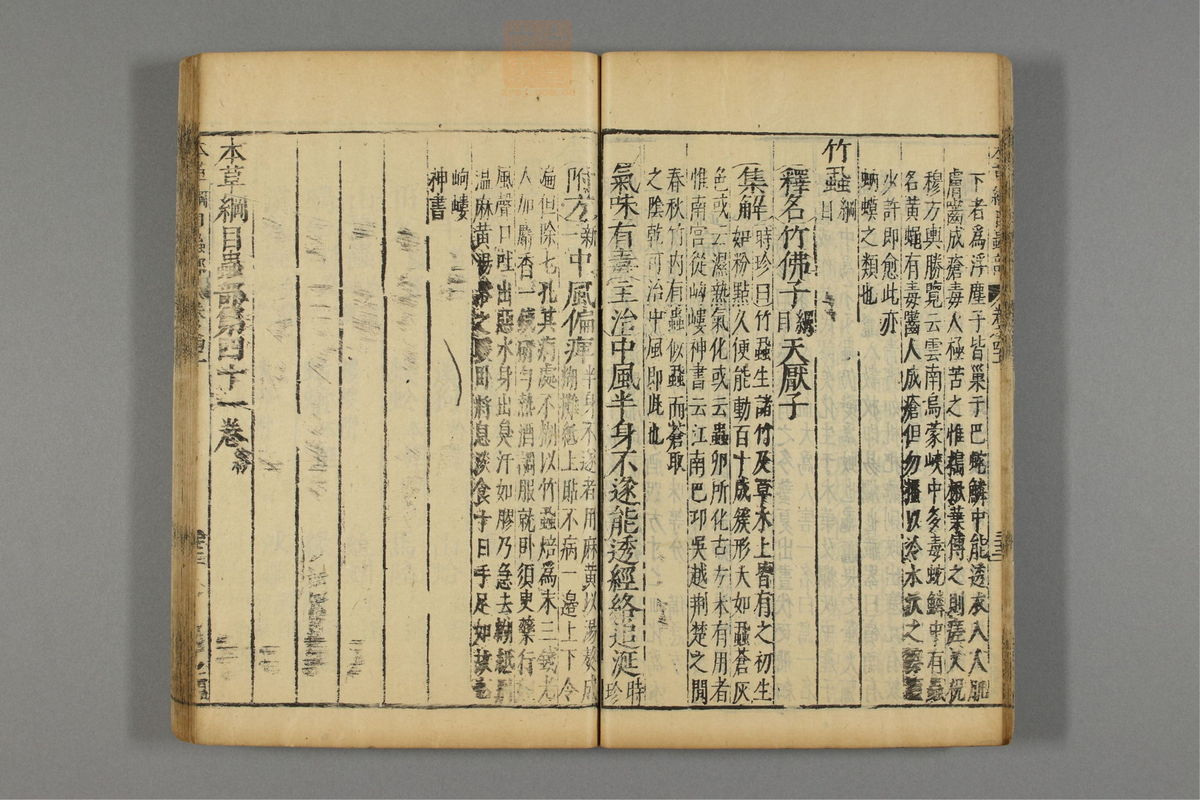 下者爲浮塵子皆巢于巴蛇鱗中能透衣入人肌
膚齧成瘡毒人極苦之惟擣楸葉傅之則瘥又祝
穆方輿勝覽云雲南烏蒙峽中多毒蛇鱗中有蟲
名黃蠅有毒齧人成瘡但勿搔以冷水沃之
少許卽愈此亦
蚋蠓之類也
竹蝨綱目
釋名竹佛子綱目天厭子
集解時珍曰竹蝨生諸竹及草木上皆有之初生
如粉點久便能動百十成簇形大如蝨蒼灰
色或云濕熱氣化或云蟲卵所化古方未有用者
惟南宮從岣嶁神書云江南巴邛吳越荆楚之閒
春秋竹內有蟲似蝨而蒼取
之陰乾可治中風卽此也
氣味有毒主治中風半身不遂能透經絡追涎時珍
附方新一中風偏痺半身不遂者用麻黃以湯熬成
糊攤紙上貼不病一邊上下令
徧但除七孔其病處不糊以竹蝨焙爲末三錢尤
人加麝香一錢研勻熱酒調服就臥須臾藥行
風聲口吐出惡水身出臭汗如膠乃急去糊紙別
溫麻黃湯浴之臥將息淡食十日手足如故也
岣嶁
神書
本草綱目蟲部第四十一卷終